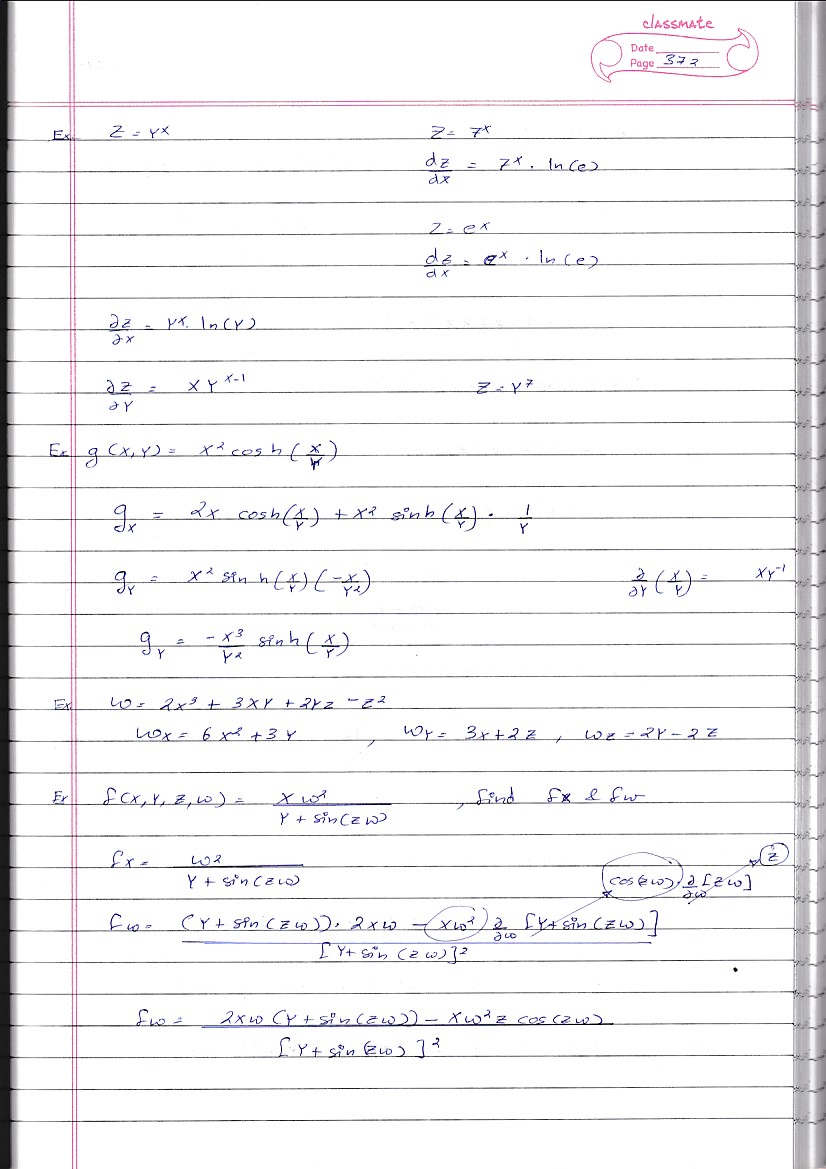 classmate
Date
Page 372
Ex z = y^x z = 7^x
dz/dx = 7^x . ln(e)
z = e^x
dz/dx = e^x . ln(e)
∂z/∂x = y^x. ln(y)
∂z/∂y = xy^x-1 z = y^7
Ex g(x,y) = x^2 cosh(x/y)
g_x = 2x cosh(x/y) + x^2 sinh(x/y) . 1/y
g_y = x^2 sinh(x/y)(-x/y^2) ∂/∂y(x/y) = xy^-1
g_y = -x^3/y^2 sinh(x/y)
Ex w = 2x^3 + 3xy + 2yz - z^2
w_x = 6x^2 + 3y , w_y = 3x + 2z , w_z = 2y - 2z
Ex f(x,y,z,w) = xw^2/y + sin(zw) , find fx & fw
fx = w^2/y + sin(zw) cos(zw) . ∂/∂w [zw] z
fw = (y + sin(zw)) . 2xw - (xw^2) ∂/∂w [y + sin(zw)]/[y + sin(zw)]^2
fw = 2xw (y + sin(zw)) - xw^2 z cos(zw)/[y + sin(zw)]^2